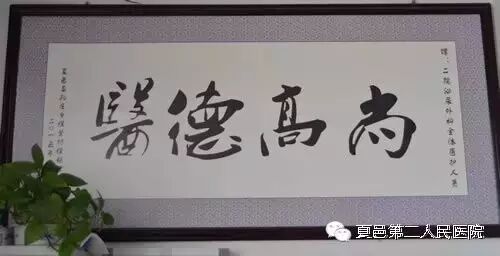 赠：二院泌尿外科全体医护人员
醫德高尚
夏邑县孔庄乡
二〇一五年
夏邑第二人民医院